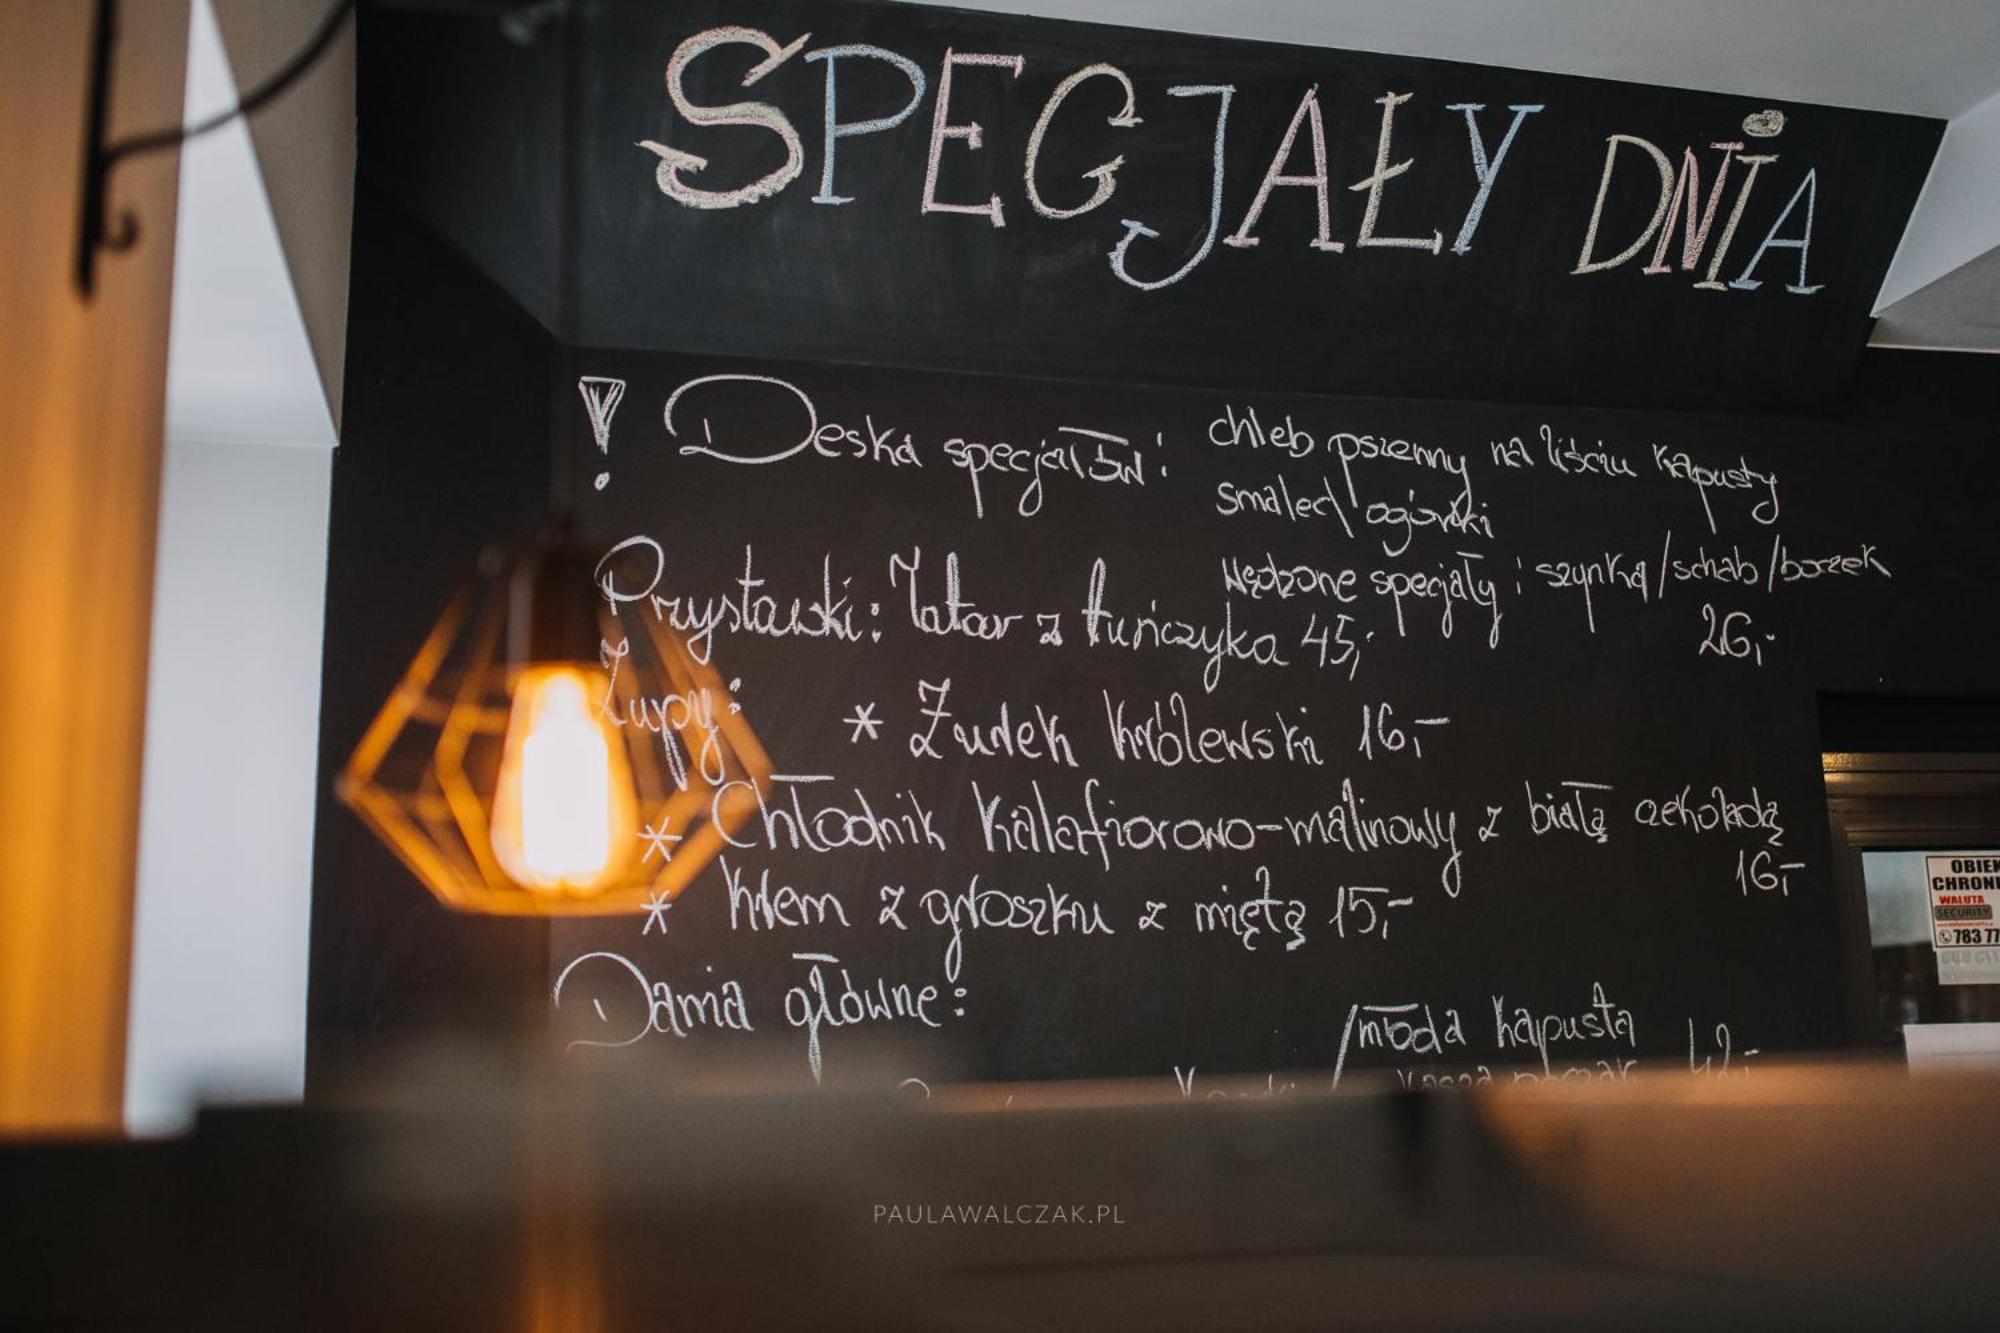 SPECJAŁY DNIA
! Deska specjałów: chleb pszenny na liściu kapusty
smalec\ ogórki
wędzone specjały: szynka/schab/boczek
26,-
Przystawki: Tatar z tuńczyka 45,-
Zupy:
* Żurek Królewski 16,-
* Chłodnik Kalafiorowo-malinowy z białą czekoladą
16,-
* Krem z groszku z miętą 15,-
Dania główne:
/młoda kapusta
42,-
OBIEK
CHRONI
WALUTA
SECURITY
783 77
PAULAWALCZAK.PL